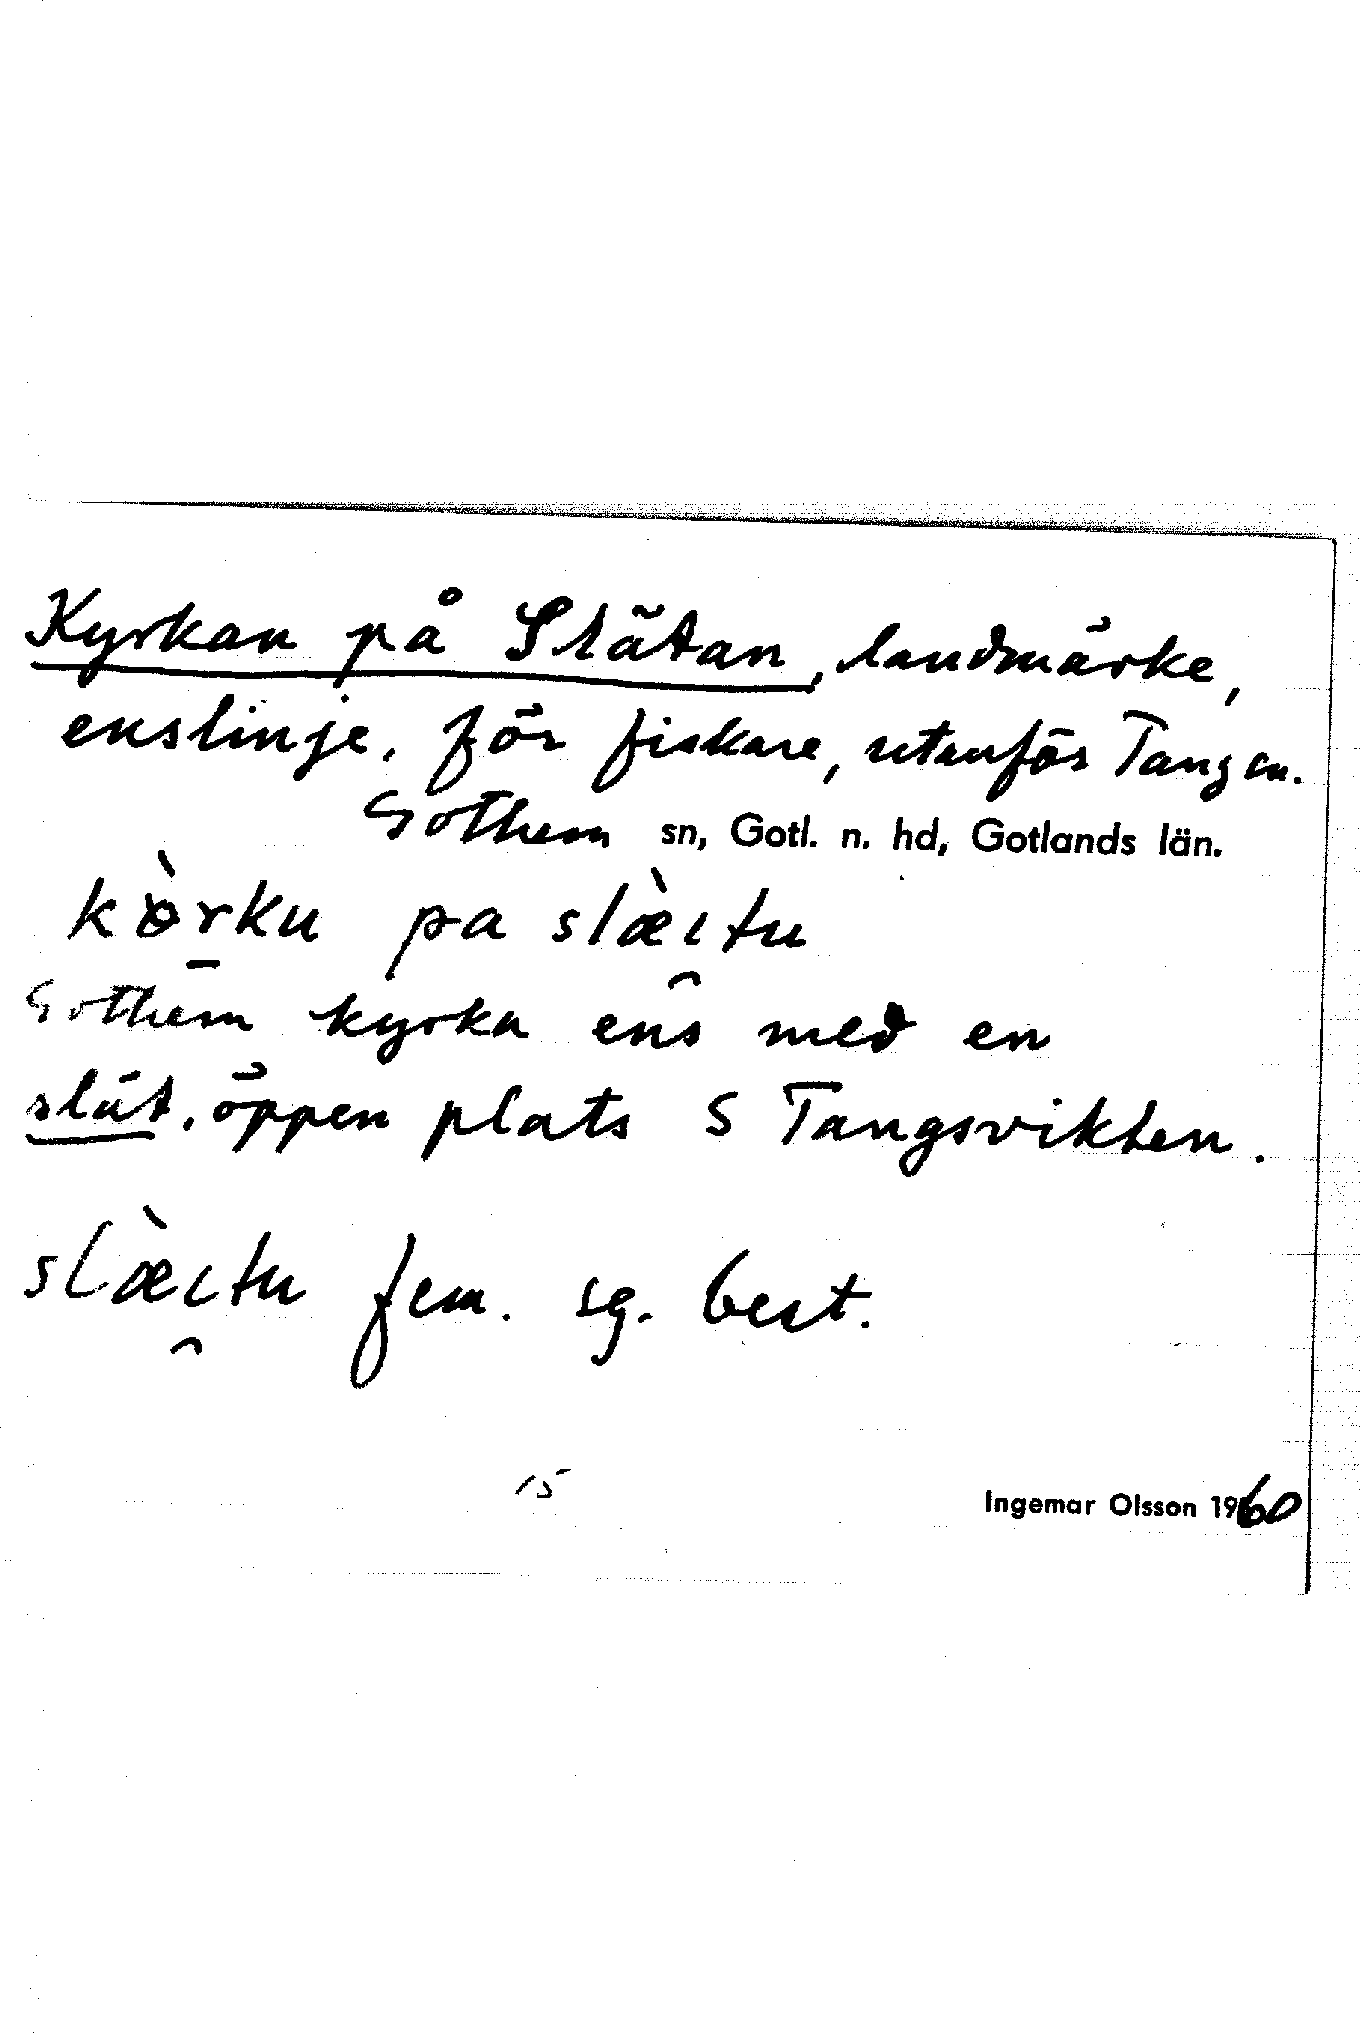 Kyrkan på Slätan, landmärke,
enslinje, för fiskare, utanför Tangen.
Gothem sn, Gotl. n. hd, Gotlands län.
kòrku pa slæ̀ıtu
Gothem kyrka ens med en
slät, öppen plats S Tangsvikten.
slæ̀ıtu fem. sg. best.
15
Ingemar Olsson 1960